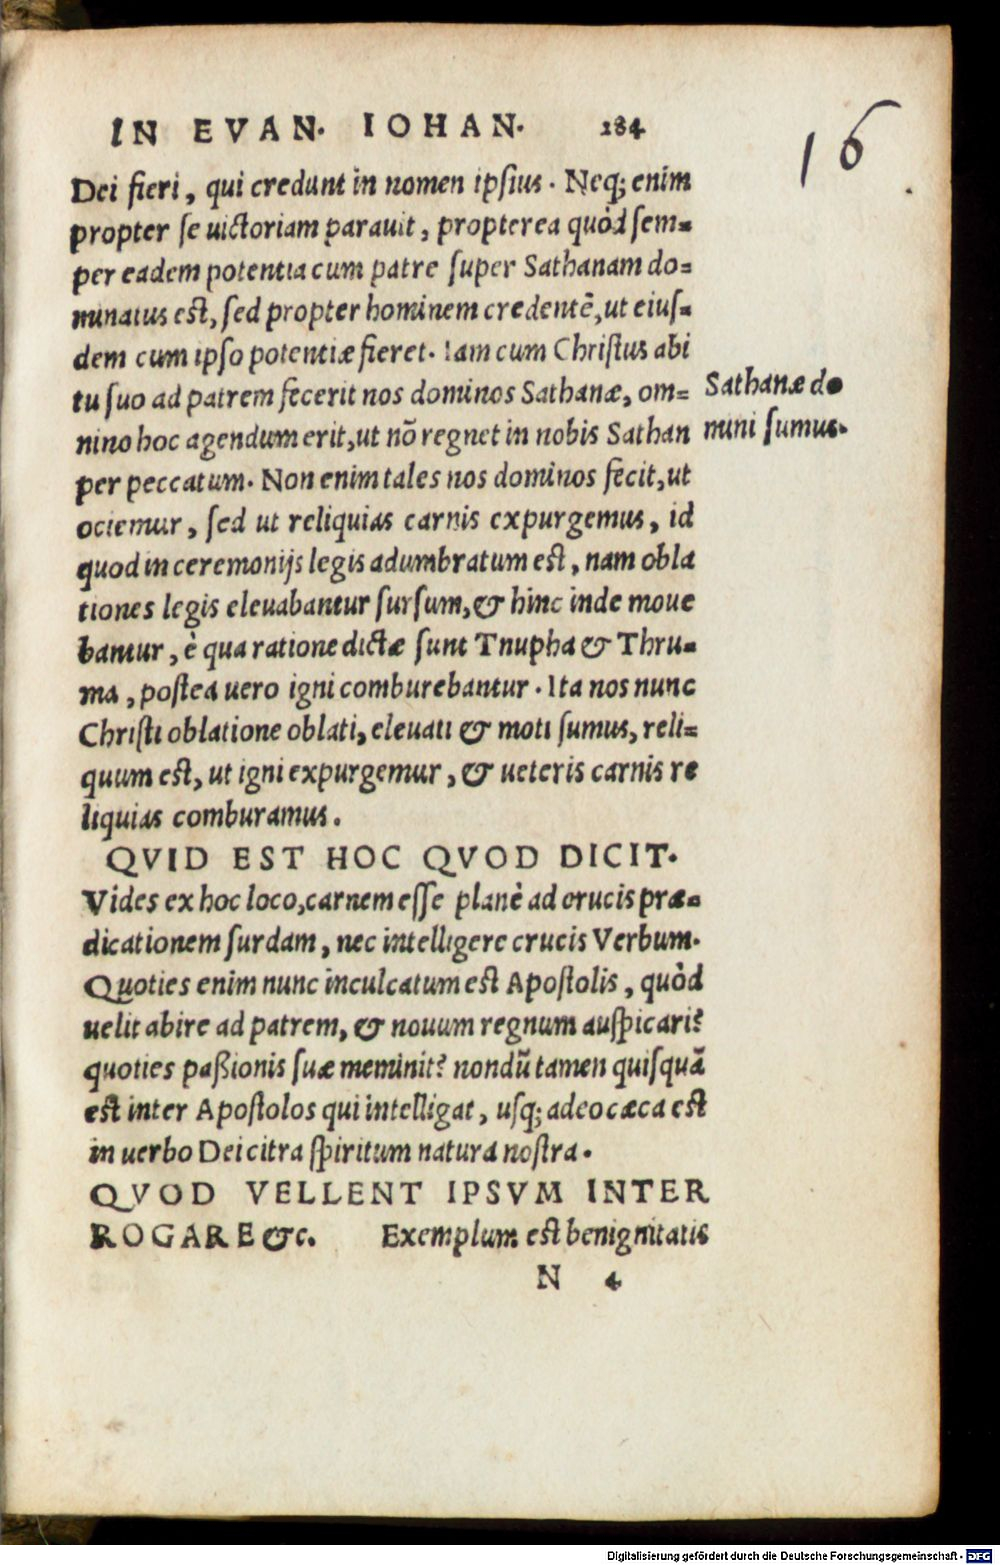 IN EVAN. IOHAN. 184
16
Dei fieri, qui credunt in nomen ipsius. Neq; enim
propter se uictoriam parauit, propterea quòd sem-
per eadem potentia cum patre super Sathanam do-
minatus est, sed propter hominem credentē, ut eius-
dem cum ipso potentiæ fieret. Iam cum Christus abi
tu suo ad patrem fecerit nos dominos Sathanæ, om-
nino hoc agendum erit, ut nō regnet in nobis Sathan
per peccatum. Non enim tales nos dominos fecit, ut
ociemur, sed ut reliquias carnis expurgemus, id
quod in ceremonijs legis adumbratum est, nam obla
tiones legis eleuabantur sursum, & hinc inde moue
bantur, è qua ratione dictæ sunt Tnupha & Thru-
ma, postea uero igni comburebantur. Ita nos nunc
Christi oblatione oblati, eleuati & moti sumus, reli-
quum est, ut igni expurgemur, & ueteris carnis re
liquias comburamus.
Sathanæ do
mini sumus.
QVID EST HOC QVOD DICIT.
Vides ex hoc loco, carnem esse planè ad crucis præ-
dicationem surdam, nec intelligere crucis Verbum.
Quoties enim nunc inculcatum est Apostolis, quòd
uelit abire ad patrem, & nouum regnum auspicari?
quoties paßionis suæ meminit? nondū tamen quisquā
est inter Apostolos qui intelligat, usq; adeo cæca est
in uerbo Dei citra spiritum natura nostra.
QVOD VELLENT IPSVM INTER
ROGARE &c. Exemplum est benignitatis
N 4
Digitalisierung gefördert durch die Deutsche Forschungsgemeinschaft - DFG